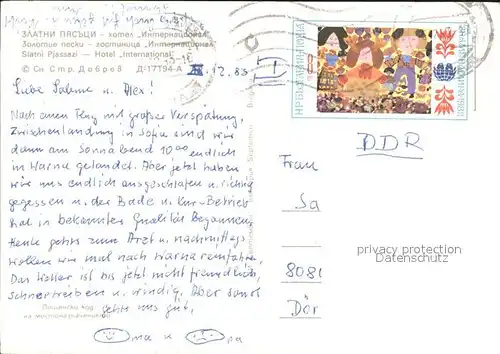 ЗЛАТНИ ПЯСЪЦИ – хотел „Интернационал"
Золотые пески – гостиница „Интернационал"
Slatni Pjassazi – Hotel „International"
© Сн. Стр. Добрев Д-17794-А
12.83
НР БЪЛГАРИЯ
DDR
Liebe Sabine u. Alex!
Nach einem Flug mit großer Verspätung,
Zwischenlandung in Sofia sind wir
dann am Sonnabend 10⁰⁰ endlich
in Warna gelandet. Aber jetzt haben
wir uns endlich ausgeschlafen u. richtig
gegessen u. der Bade u. Kur-Betrieb
hat in bekannter Qualität begonnen.
Heute gehts zum Arzt u. nachmittags
wollen wir mal nach Warna reinfahren.
Das Wetter ist bis jetzt nicht freundlich,
Schneetreiben u. windig. Aber sonst
gehts uns gut,
Oma u Opa
Frau
Sa
8081
Dör
privacy protection
Datenschutz
Пощенски код
на местоназначението